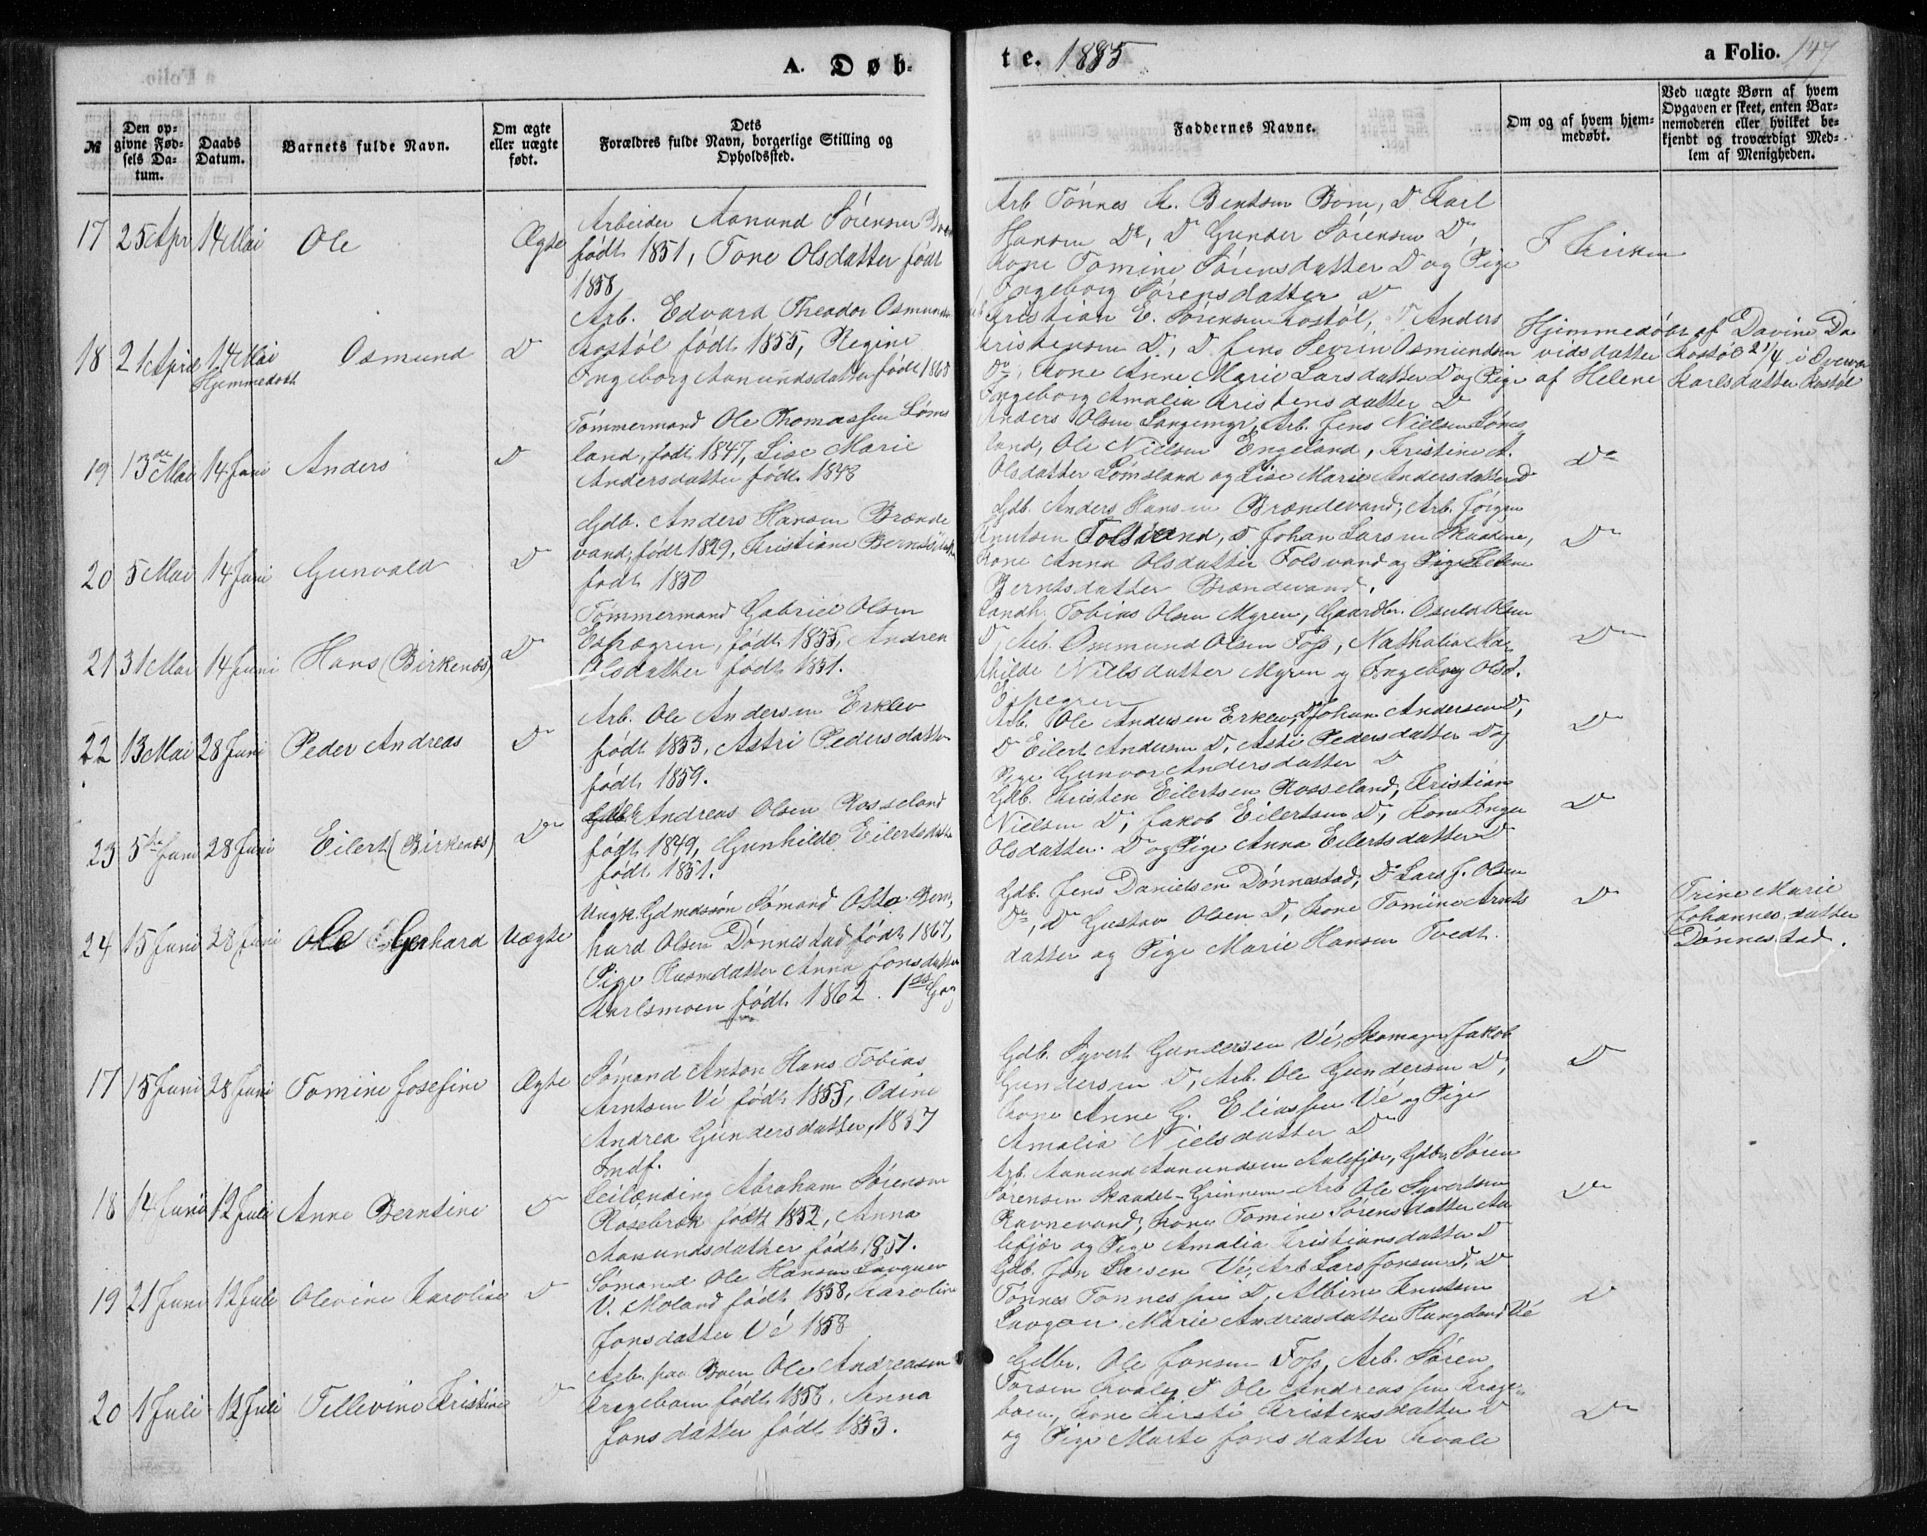 A. Døb-
te. 1885
a Folio. 147
№
Den op-
givne Fød-
sels Da-
tum.
Daabs
Datum.
Barnets fulde Navn.
Om ægte
eller uægte
født.
Dets
Forældres fulde Navn, borgerlige Stilling og
Opholdssted.
Faddernes Navne.
Om og af hvem hjem-
medøbt.
Ved uægte Børn af hvem
Opgaven er skeet, enten Bar-
nemoderen eller hvilket be-
kjendt og troværdigt Med-
lem af Menigheden.
17 25 Apr 14 Mai Ole Ægte
Arbeider Aanund Sørensen
født 1851, Tone Olsdatter født
1858
Arb Tønnes K. Bentsen Boen, Do Karl
Hansen Do, Do Gunder Sørensen Do,
Kone Tomine Sørensdatter Do og Pige
Ingeborg Sørensdatter Do
I Kirken
18 21 April 14 Mai Osmund Do
Hjemmedøbt
Arb. Edvard Theodor Osmundsen
Kostøl født 1855, Regine
Ingeborg Aanundsdatter født 1860
Kristian E. Sørensen Kostøl, Do Anders
Kristensen Do, Do Jens Severin Osmundsen
Do, Kone Anne Marie Larsdatter Do og Pige
Ingeborg Amalia Kristensdatter Do
Hjemmedøbt af Davine Da
vidsdatter Kostøl 21/4 i Overvær
af Helene Karlsdatter Kostøl
19 13de Mai 14 Juni Anders Do
Tømmermand Ole Thomassen Løms
land, født 1847, Lise Marie
Andersdatter født 1848
Anders Olsen Langemyr, Arb. Jens Nielsen Løms
land, Ole Nielsen Engeland, Kristine A.
Olsdatter Lømsland og Lise Marie Andersdatter Do
Do
20 5 Mai 14 Juni Gunvald Do
Gdb. Anders Hansen Brænde
vand, født 1829, Kristiane Berntsdatter
født 1850
Gdb. Anders Hansen Brændevand, Arb. Jørgen
Knutsen Folsvand, Do Johan Larsen
Kone Anna Olsdatter Folsvand og Pige Helene
Berntsdatter Brændevand.
Do
21 31 Mai 14 Juni Hans (Birkenes) Do
Tømmermand Gabriel Olsen
Espegren, født 1855, Andrea
Olsdatter født 1851.
Landh. Tobias Olsen Myren, Gaardbr. Osuld Olsen
Do, Arb. Ommund Olsen Foss, Nathalia Ma-
thilde Nielsdatter Myren og Ingeborg Olsd.
Espegren
Do
22 13 Mai 28 Juni Peder Andreas Do
Arb. Ole Andersen Erklev
født 1853, Astri Pedersdatter
født 1859.
Arb. Ole Andersen Erklev, Do Johan Andersen Do,
Do Eilert Andersen Do, Astri Pedersdatter Do og
Pige Gunvor Andersdatter Do
Do
23 5te Juni 28 Juni Eilert (Birkenes) Do
Andreas Olsen Rosseland
født 1849, Gunhilde Eilertsdatter
født 1851.
Gdb. Kristen Eilertsen Rosseland, Kristian
Nielsen Do, Jakob Eilertsen Do, Kone Inger
Olsdatter Do og Pige Anna Eilertsdatter Do
Do
24 15 Juni 28 Juni Ole Gerhard Uægte
Ungk. Gdmdssøn Sømand Otto Bern-
hard Olsen Dønnestad født 1867,
Pige Husmdatter Anna Jonsdatter
Karlsmoen født 1862. 1ste Gang
Gdb. Jens Danielsen Dønnestad, Do Lars J. Olsen
Do, Do Gustav Olsen Do, Kone Tomine Arnts
datter og Pige Marie Hansen Tvedt.
Do
Trine Marie
Johannesdatter
Dønnestad.
17 15 Juni 28 Juni Tomine Josefine Ægte
Sømand Anton Hans Tobias
Arntsen Vé født 1855, Odine
Andrea Gundersdatter, 1857
Indf.
Gdb. Syvert Gundersen Vé, Skomager Jakob
Gundersen Do, Arb. Ole Gundersen Do,
Kone Anne G. Eliassen Vé og Pige
Amalia Nielsdatter Do
Do
18 14 Juni 12 Juli Anne Berntine Do
Leilænding Abraham Sørensen
Rosebræk født 1852, Anna
Aanundsdatter født 1851.
Arb. Aanund Aanundsen Aalefjær, Gdbr. Søren
Sørensen Skaadel-Grinnem Arb Ole Syvertsen
Ravnevand, Kone Tomine Sørensdatter Aa
lefjær og Pige Amalia Kristiansdatter Do
Do
19 21 Juni 12 Juli Olevine Karoline Do
Sømand Ole Hansen Lauguen
V. Moland født 1858, Karoline
Jonsdatter Vé 1858
Gdb. Jon Larsen Vé, Arb Lars Jonsen Do, Do
Tønnes Tønnessen Do, Albine Knutsen
Laugen, Marie Andreasdatter Haugland Vé
Do
20 1 Juli 12 Juli Tellevine Kristine Do
Arb. paa Boen Ole Andreasen
Krageboen født 1858, Anna
Jonsdatter født 1853.
Gdbr. Ole Jonsen Foss, Arb. Søren
Torsen Kvale, Do Ole Andreassen Krage-
boen, Kone Kirsti Kristensdatter Do
og Pige Marte Jonsdatter Kvale
Do